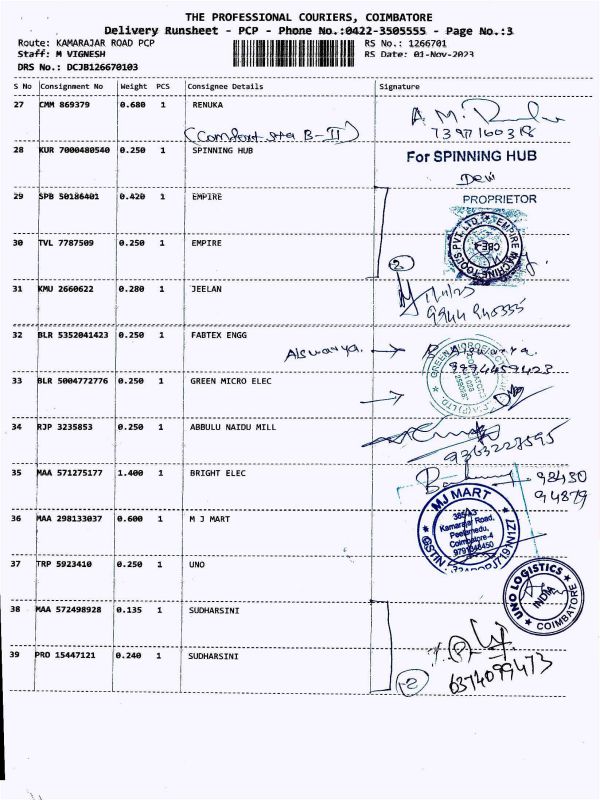 THE PROFESSIONAL COURIERS, COIMBATORE
Delivery Runsheet - PCP - Phone No.:0422-3505555 - Page No.:3
Route: KAMARAJAR ROAD PCP RS No.: 1266701
Staff: M VIGNESH RS Date: 01-Nov-2023
DRS No.: DCJB126670103
S No Consignment No Weight PCS Consignee Details Signature
27 CMM 869379 0.680 1 RENUKA
A.M.
28 KUR 7000480540 0.250 1 SPINNING HUB
For SPINNING HUB
Devi
PROPRIETOR
29 SPB 50186401 0.420 1 EMPIRE
EMPIRE MACHINE TOOLS PVT.LTD.
CBE-4
30 TVL 7787509 0.250 1 EMPIRE
2
31 KMU 2660622 0.280 1 JEELAN
32 BLR 5352041423 0.250 1 FABTEX ENGG
Aiswarya. → B. Aiswarya.
9994459423
33 BLR 5004772776 0.250 1 GREEN MICRO ELEC
34 RJP 3235853 0.250 1 ABBULU NAIDU MILL
9363227595
35 MAA 571275177 1.400 1 BRIGHT ELEC
98430
94879
36 MAA 298133037 0.600 1 M J MART
MJ MART
Kamarajar Road,
Peelamedu,
Coimbatore-4
GSTIN
37 TRP 5923410 0.250 1 UNO
UNO LOGISTICS
INDIA
COIMBATORE
38 MAA 572498928 0.135 1 SUDHARSINI
39 PRO 15447121 0.240 1 SUDHARSINI
6374099473
2